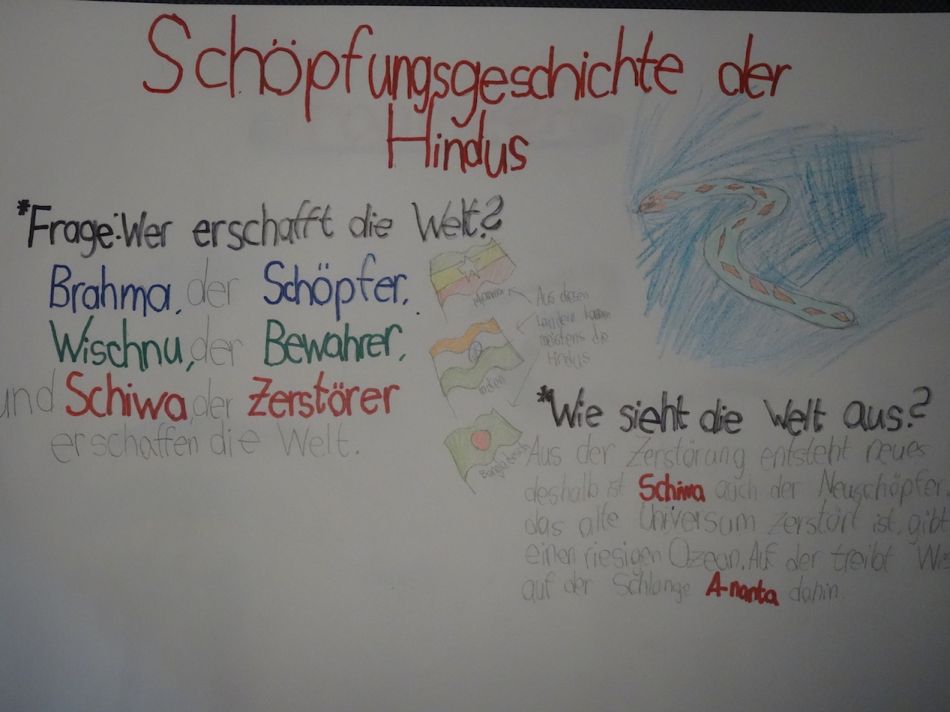 Schöpfungsgeschichte der
Hindus
*Frage: Wer erschafft die Welt?
Brahma, der Schöpfer,
Wischnu, der Bewahrer,
und Schiwa, der Zerstörer
erschaffen die Welt.
Aus diesen
meistens die
Hindus
Indien
Bangladesch
*Wie sieht die Welt aus?
Aus der Zerstörung entsteht neues
deshalb ist Schiwa auch der Neuschöpfer.
das alte Universum zerstört ist, gibt
einen riesigen Ozean. Auf der treibt
auf der Schlange A-nanta dahin.